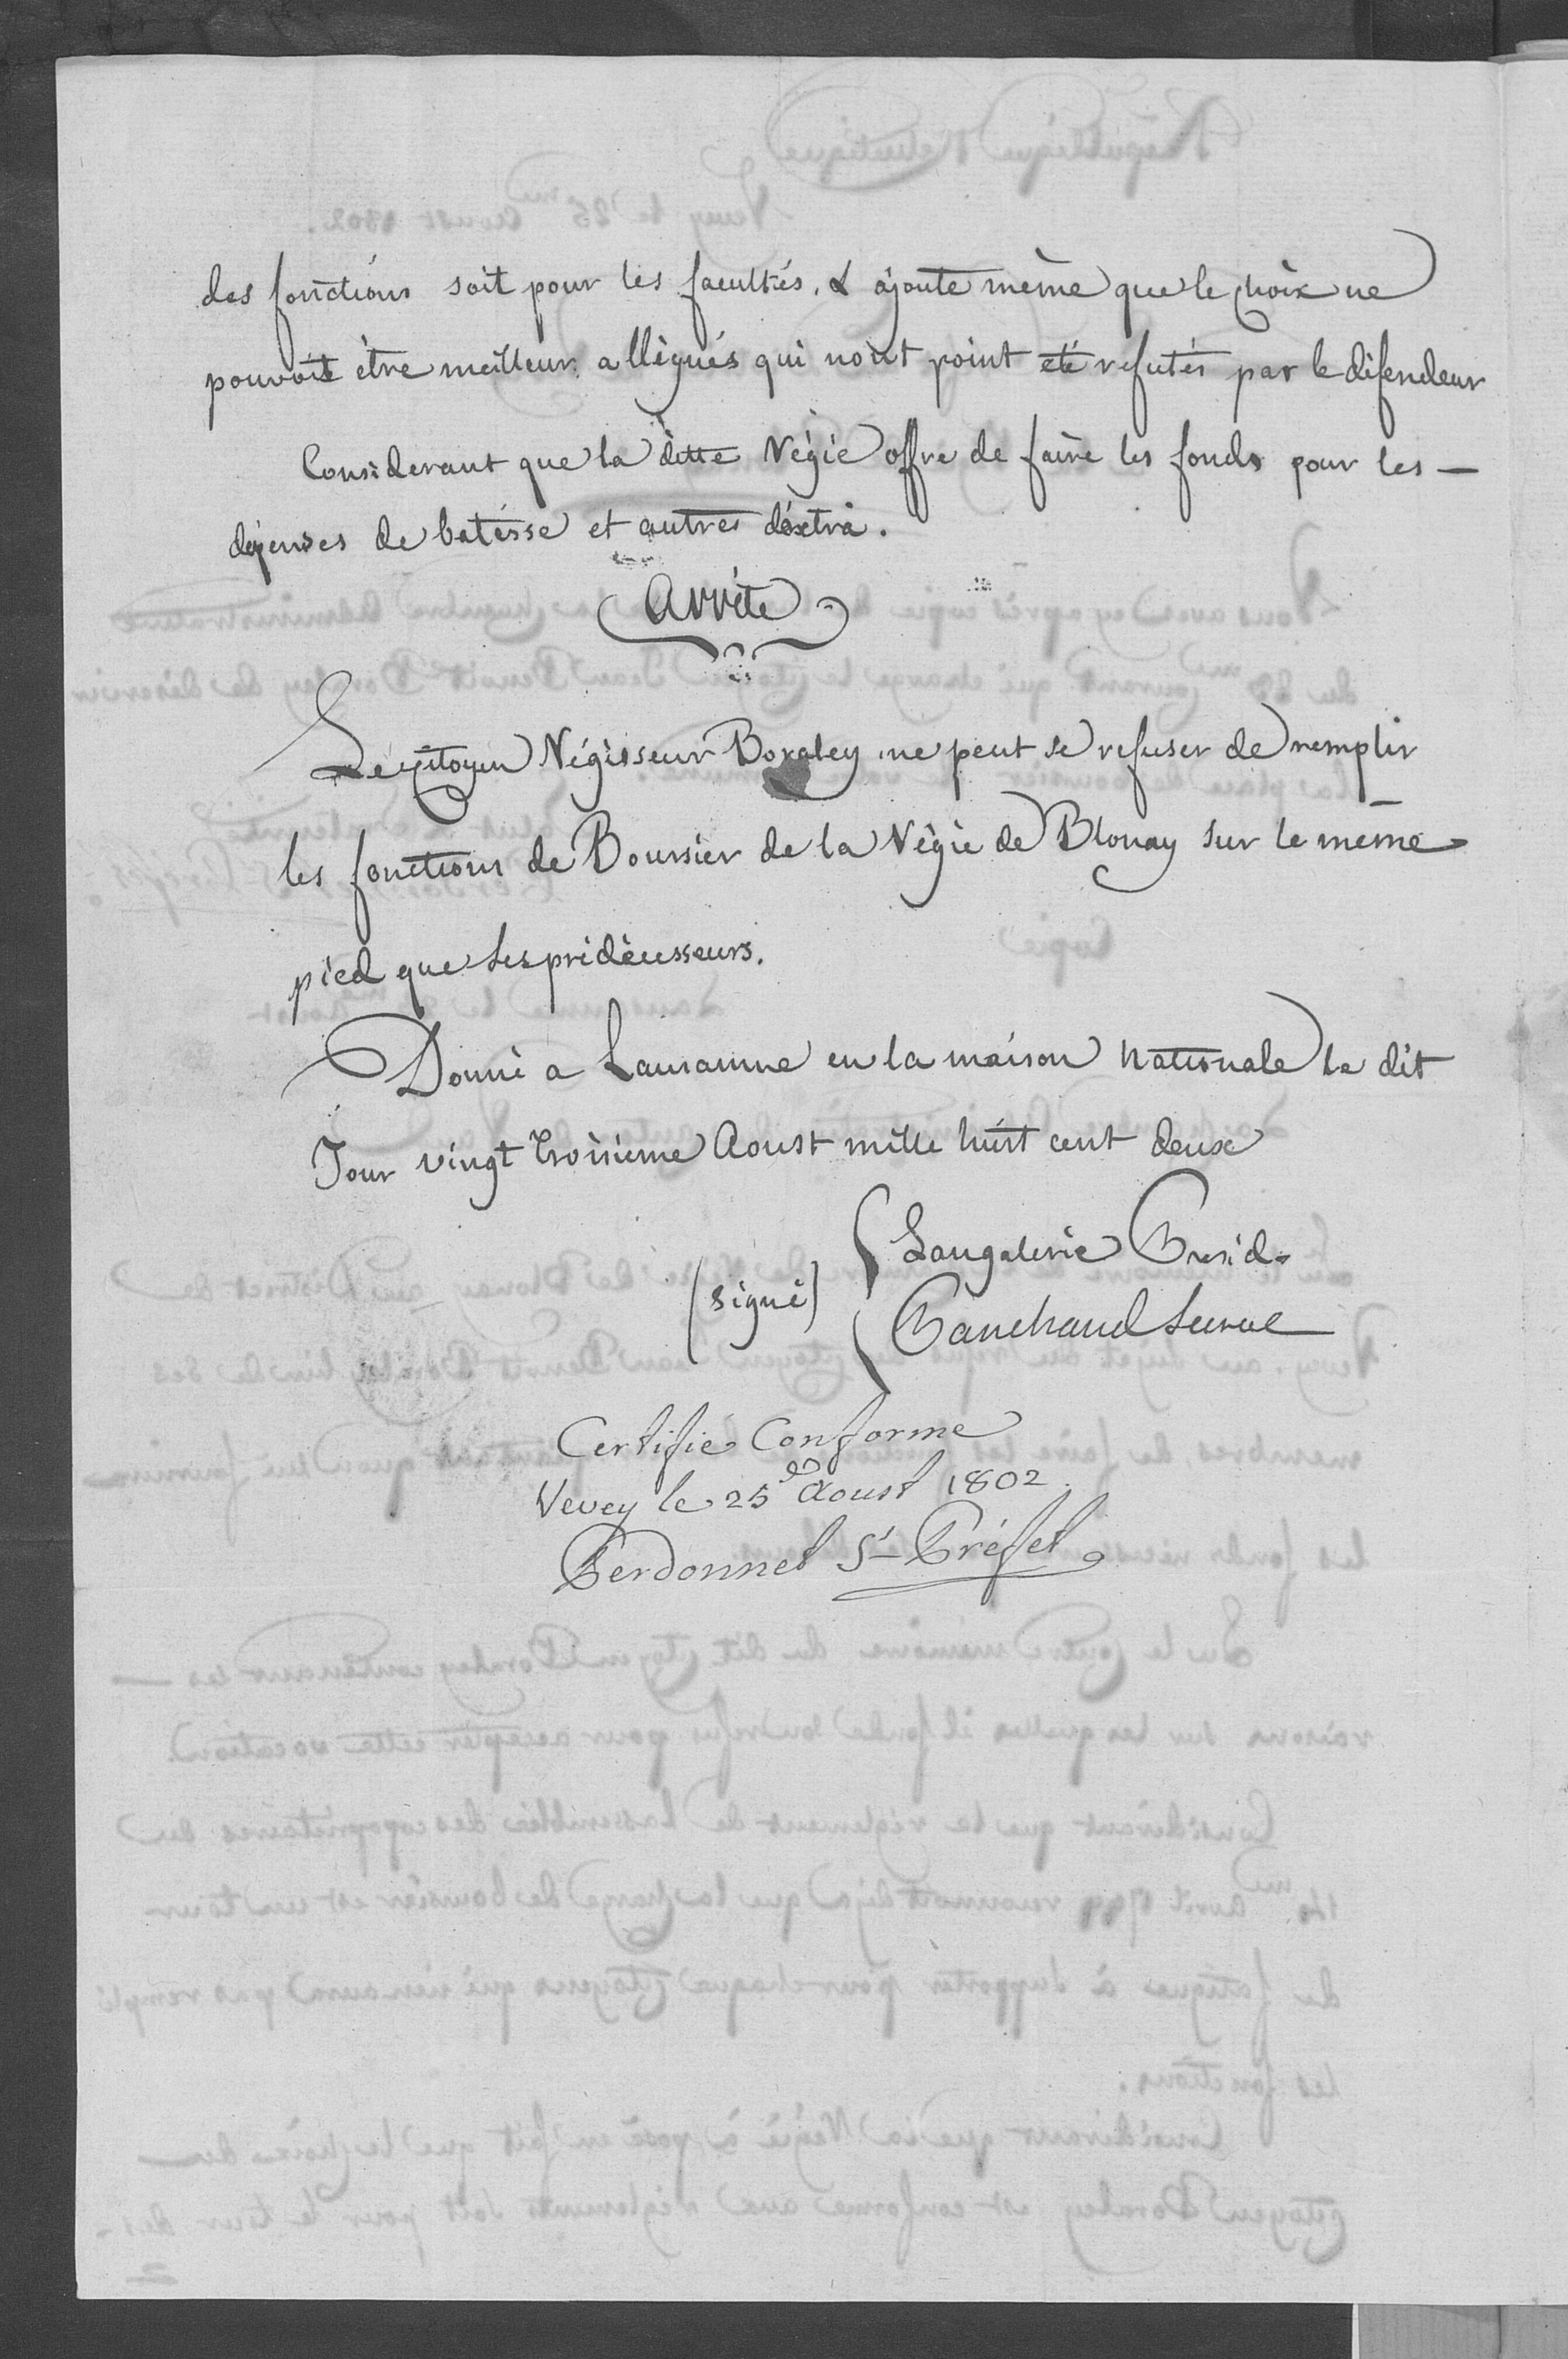 des fonctions soit pour les facultés. & ajoute même que le choix ne
pouvoit être meilleur. allégués qui n'ont point eté refutés par le défendeur
Considerant que la ditte Régie offre de faire les fonds pour les —
dépenses de batisse et autres d'éxtra.
Arrête
Le citoyen Régisseur Boraley ne peut se refuser de remplir
les fonctions de Boursier de la Régie de Blonay sur le même
pied que ses prédécesseurs.
Donné a Lausanne en la maison nationale le dit
Jour vingt troisieme Aoust mille huit cent deux
(signé)
Langalerie Presid.
Panchaud Secrre
Certifié Conforme
Vevey le 25 Aoust 1802.
Perdonnet S/-Préfet